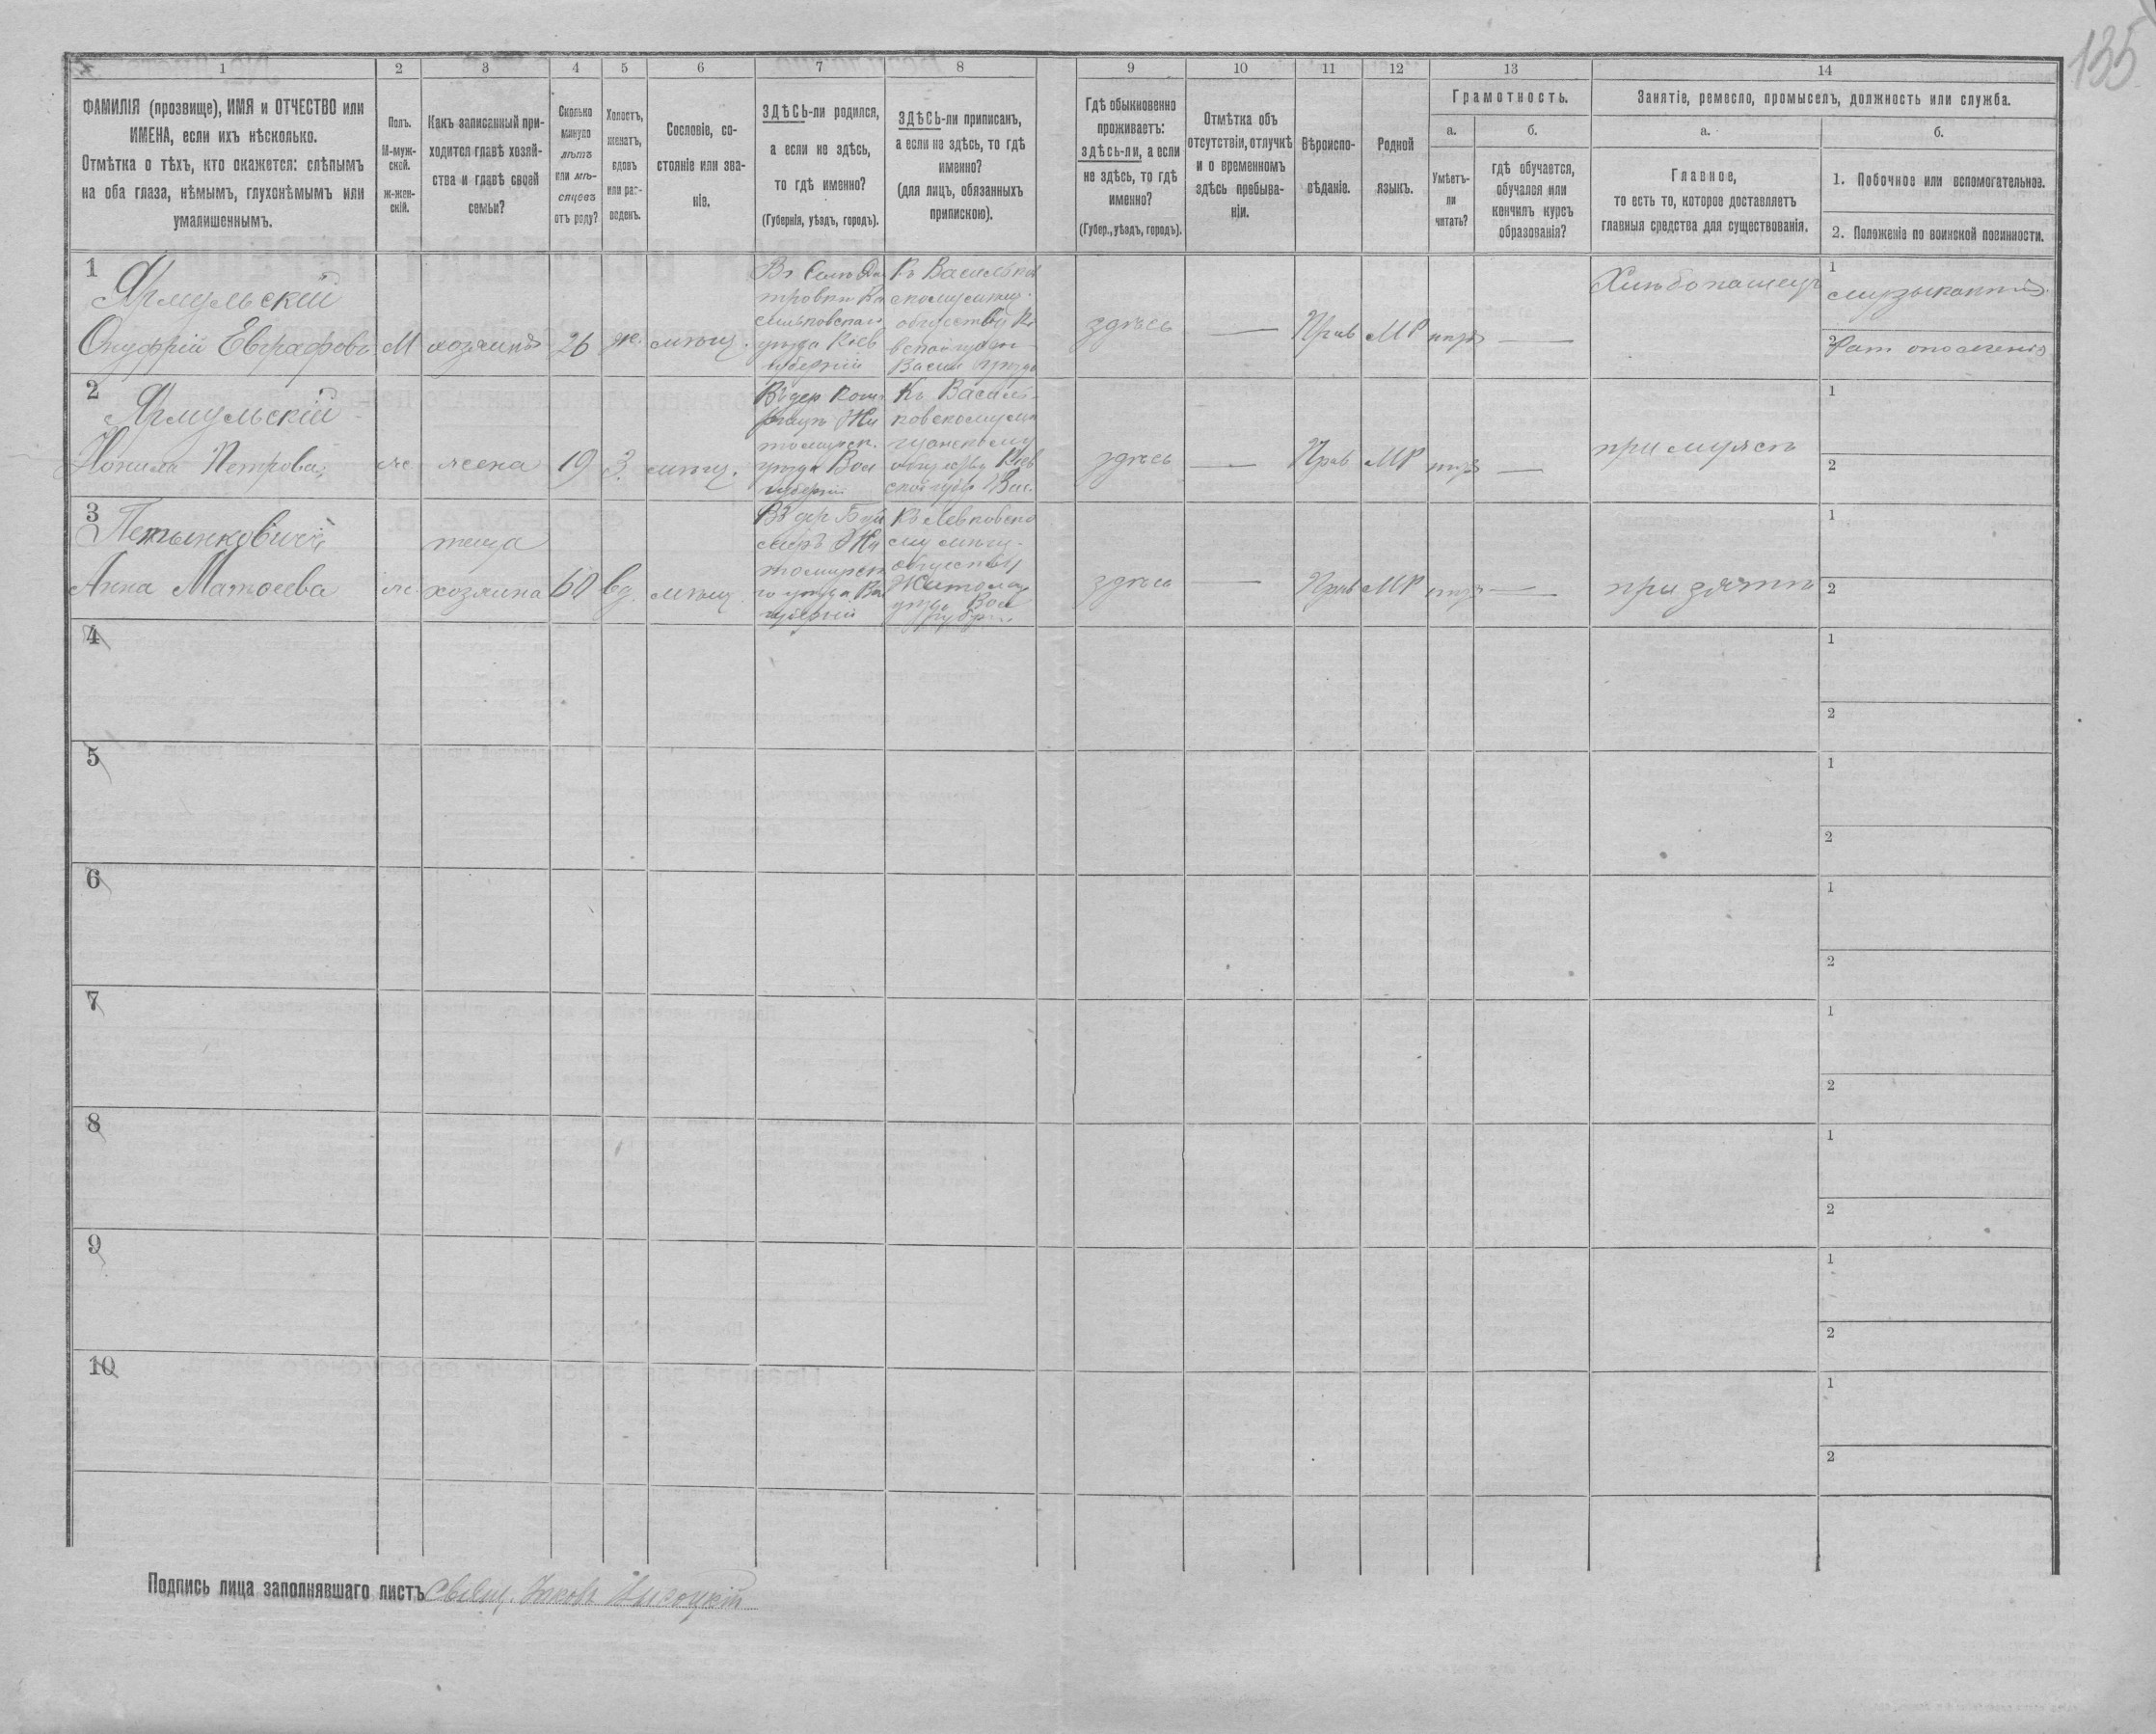 135
1 2 3 4 5 6 7 8 9 10 11 12 13 14
ФАМИЛІЯ (прозвище), ИМЯ и ОТЧЕСТВО или
ИМЕНА, если ихъ нѣсколько.
Отмѣтка о тѣхъ, кто окажется: слѣпымъ
на оба глаза, нѣмымъ, глухонѣмымъ или
умалишеннымъ.
Полъ.
М-муж-
ской.
ж-жен-
скій.
Какъ записанный при-
ходится главѣ хозяй-
ства и главѣ своей
семьи?
Сколько
минуло
лѣтъ
или мѣ-
сяцевъ
отъ роду?
Холостъ,
женатъ,
вдовъ
или раз-
веденъ.
Сословіе, со-
стояніе или зва-
ніе.
ЗДѢСЬ-ли родился,
а если не здѣсь,
то гдѣ именно?
(Губернія, уѣздъ, городъ).
ЗДѢСЬ-ли приписанъ,
а если не здѣсь, то гдѣ
именно?
(для лицъ, обязанныхъ
припискою).
Гдѣ обыкновенно
проживаетъ:
здѣсь-ли, а если
не здѣсь, то гдѣ
именно?
(Губер., уѣздъ, городъ).
Отмѣтка объ
отсутствіи, отлучкѣ
и о временномъ
здѣсь пребыва-
ніи.
Вѣроиспо-
вѣданіе.
Родной
языкъ.
Грамотность.
а.
Умѣетъ-
ли
читать?
б.
гдѣ обучается,
обучался или
кончилъ курсъ
образованія?
Занятіе, ремесло, промыселъ, должность или служба.
а.
Главное,
то есть то, которое доставляетъ
главныя средства для существованія.
б.
1. Побочное или вспомогательное.
2. Положеніе по воинской повинности.
1
Ярмульскій
Онуфрій Евграфовъ
М
хозяинъ
26
же.
мѣщ.
уѣзда Кіев
губерніи
Къ Васильков
скому мѣщ.
обществу Кі
здѣсь
—
Прав
МР
—
Хлѣбопашецъ
1
музыкантъ
2
Рат ополченія
2
Ярмульскій
Петрова
же
жена
19
З.
мѣщ.
Въ дер
Жи
томирск.
уѣзда Вол
губерніи
Къ Василь-
ковскому мѣ
щанскому
обществу Кіев
ской губ Вас.
здѣсь
—
Прав
МР
—
при мужѣ
1
2
3
Анна Матвеева
же
теща
хозяина
60
вд.
мѣщ.
Въ дер Буй
Жи
томирск
го уѣзда Во
губерніи
Къ Левковско
му мѣщ-
обществу
Житомир
уѣзда Вол
губерн.
здѣсь
—
Прав
МР
—
при зятѣ
1
2
4
1
2
5
1
2
6
1
2
7
1
2
8
1
2
9
1
2
10
1
2
Подпись лица заполнявшаго листъ Свящ. Яковъ Высоцкій